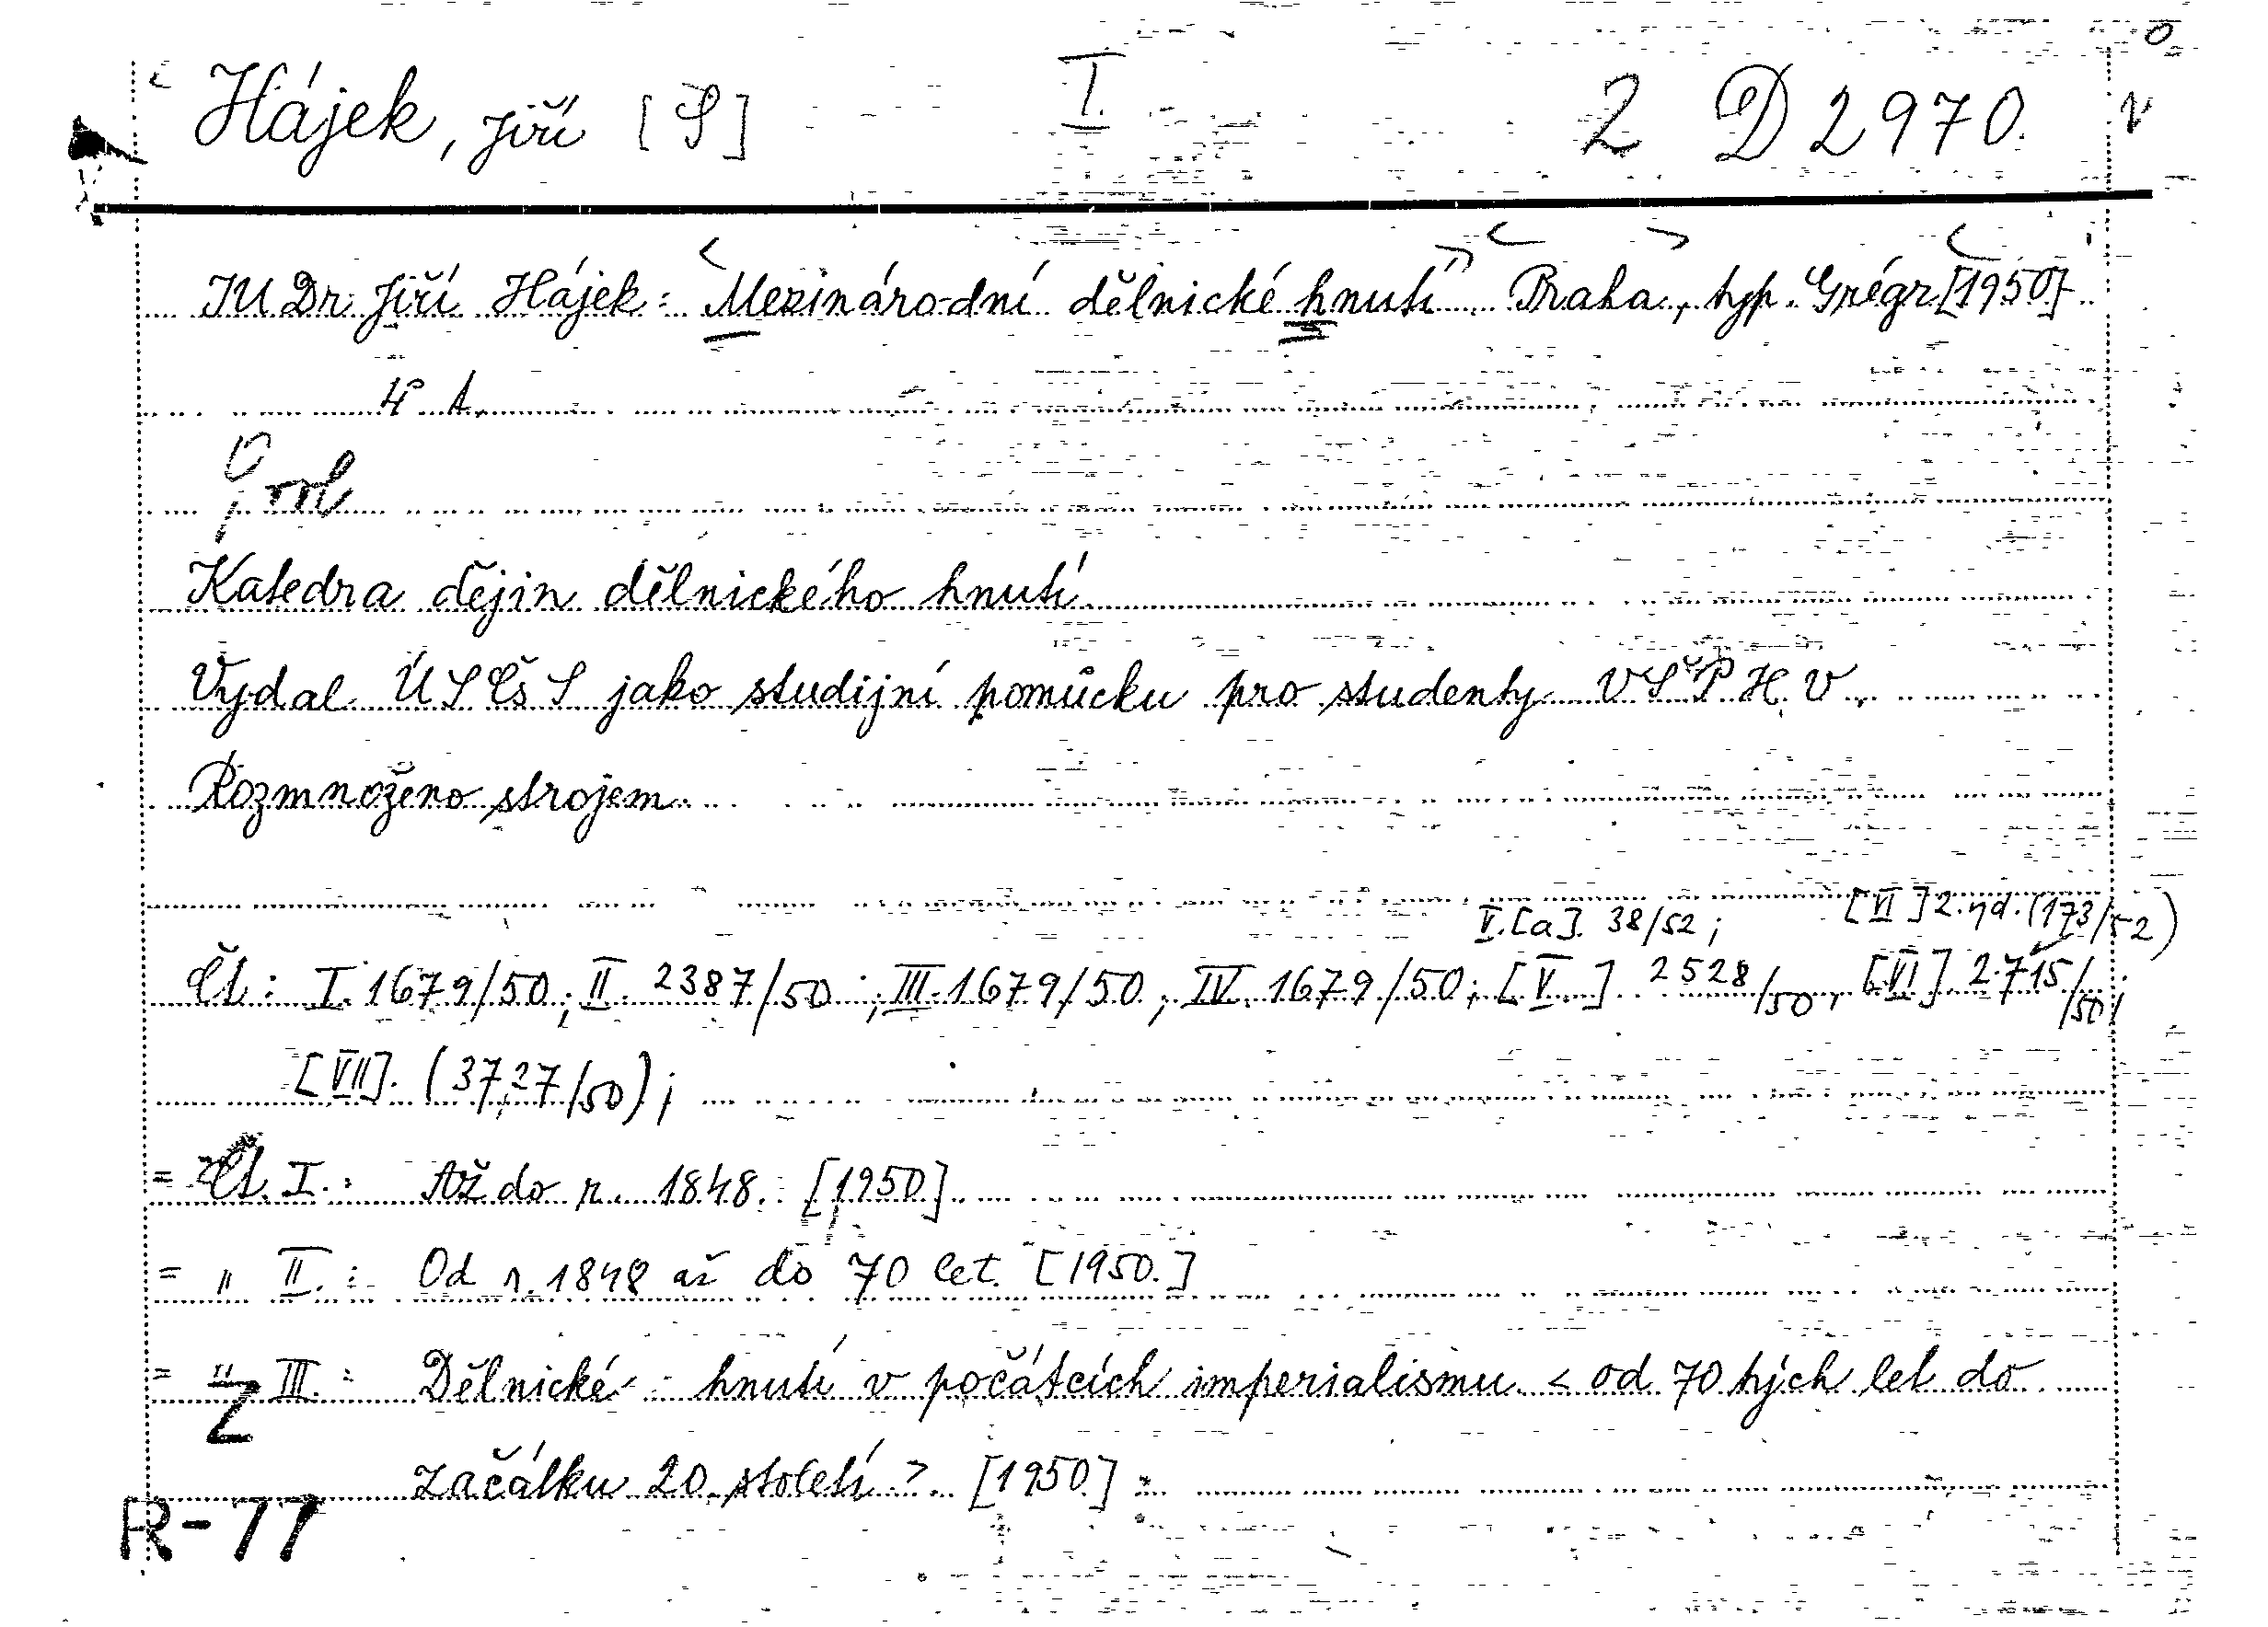 Hájek, Jiří [S] I. 2 D 2970.
JUDr. Jiří Hájek: Mezinárodní dělnické hnutí. Praha, typ. Grégr [1950]
4° A.
Katedra dějin dělnického hnutí
Vydal ÚSČsS jako studijní pomůcku pro studenty VŠPHV.
Rozmnoženo strojem.
V.[a]. 38/52; [VI] 2. vyd. (173/52)
Čl: I. 1679/50; II. 2387/50; III. 1679/50; IV. 1679/50; [V.] 2528/50, [VI]. 2715/50;
[VII]. (3727/50);
= Čl. I.: Až do r. 1848. [1950].
= " II.: Od r. 1848 až do 70 let. [1950.]
= " III.: Dělnické hnutí v počátcích imperialismu < od 70tých let do
Z
začátku 20. století >. [1950.]
R-77